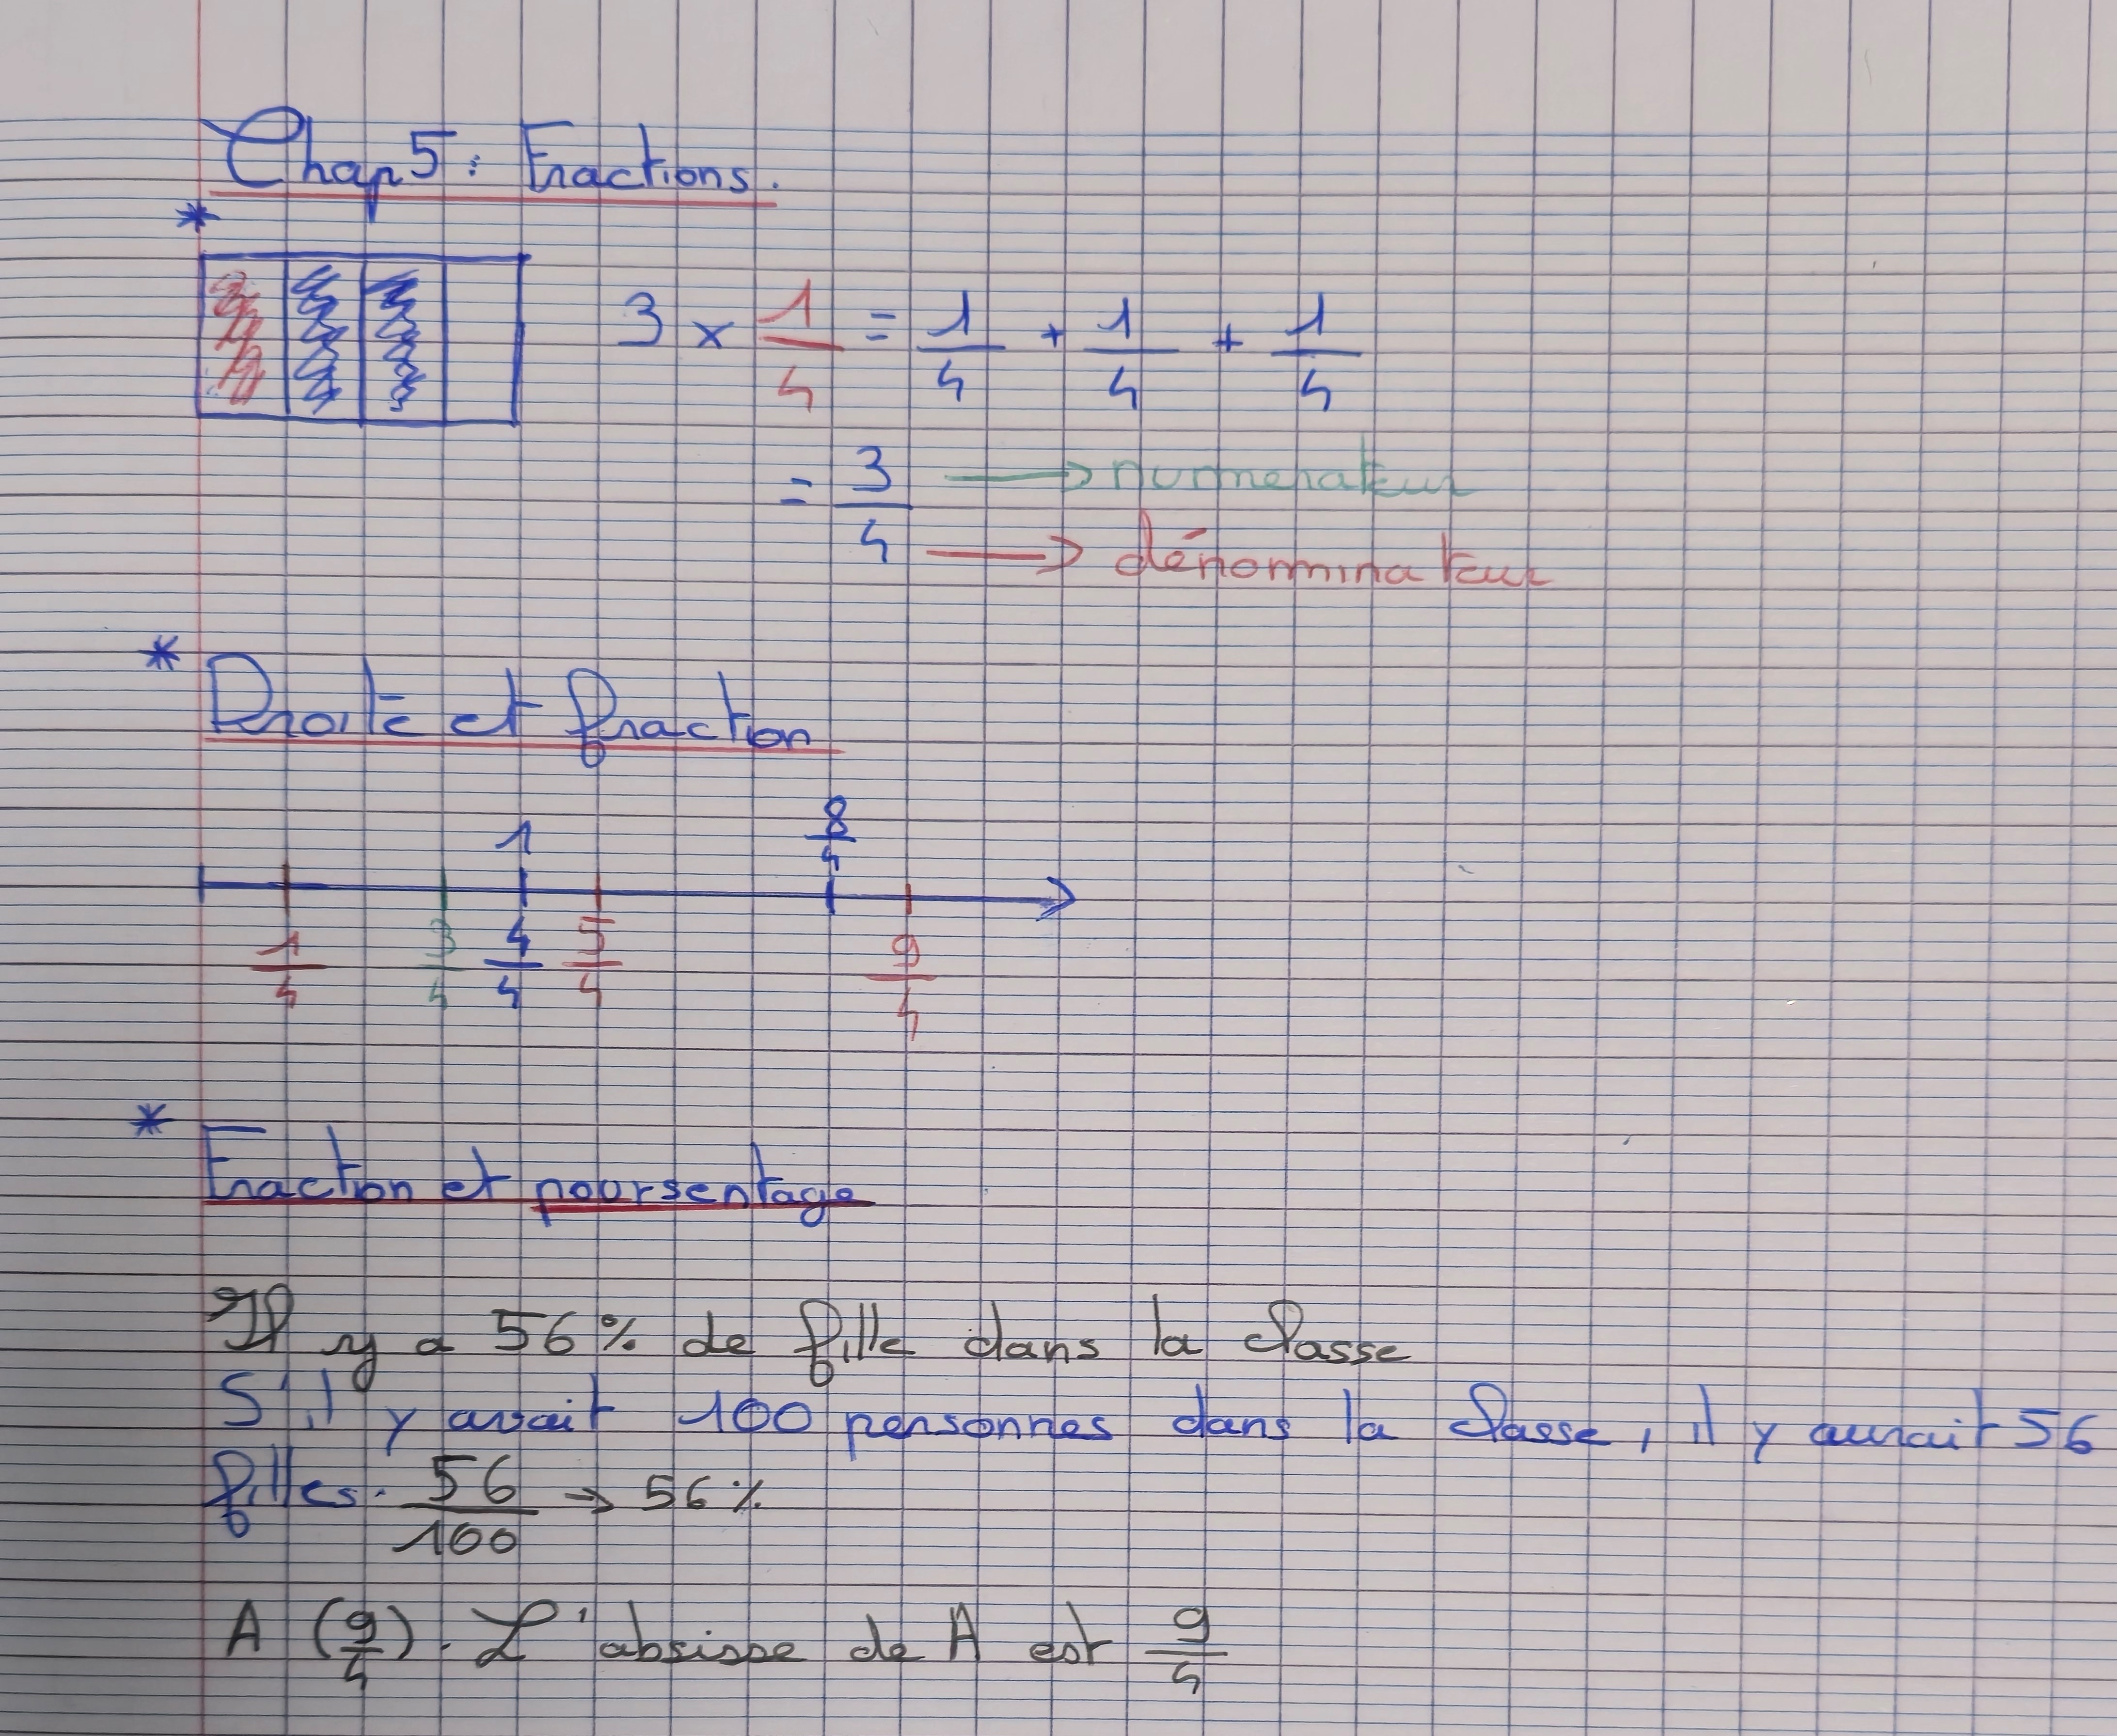 Chap 5 : Fractions.
*
3 × 1/4 = 1/4 + 1/4 + 1/4
= 3/4 → numerateur
→ dénominateur
*
Droite et fraction
1 8/4
1/4 3/4 4/4 5/4 9/4
*
Fraction et poursentage
Il y a 56 % de fille dans la classe
S'il y avait 100 personnes dans la classe, il y aurait 56
filles. 56/100 → 56 %
A (9/4). L'absisse de A est 9/4